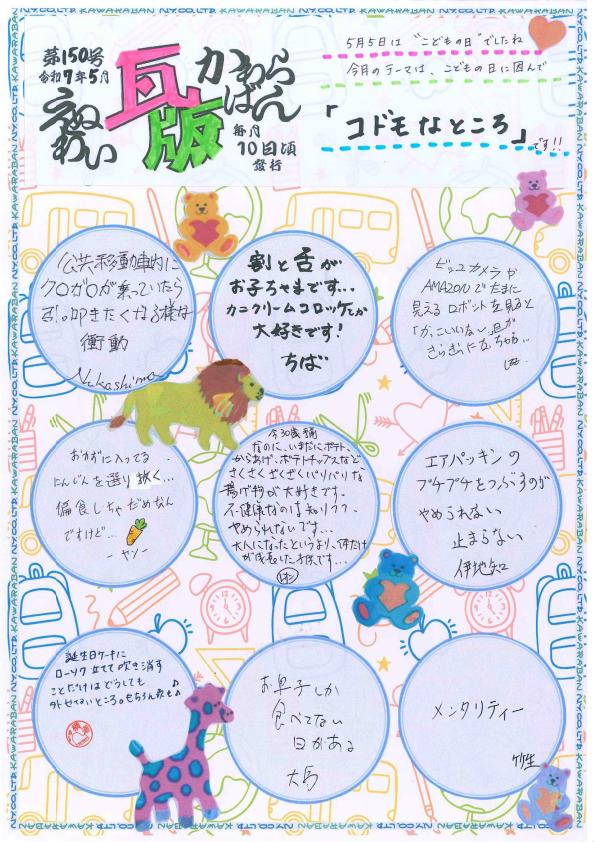 第150号
令和7年5月
えぬ
わい
瓦版
かわら
ばん
毎月
10日頃
発行
5月5日は"こどもの日"でしたね
今月のテーマは、こどもの日に因んで
「コドモなところ」
です!!
公共移動車内に
クロガロが乗っていたら
叩きたくなる様な
衝動
Nakashima
割と舌が
お子ちゃまです...
カニクリームコロッケとか
大好きです!
ちば
ビックカメラや
AMAZONでたまに
見るロボットを見ると
「かっこいいなぁ」と
おかずに入ってる
にんじんを選り抜く...
偏食しちゃだめなん
ですけど...
-ヤソ-
今30歳
なのに、いまだにポテト、
からあげ、ポテトチップスなど
さくさくざくざくバリバリな
揚げ物が大好きです。
不健康なのは知りつつ、
やめられないです...
大人になったというより、体だけ
が成長した子供です...
エアパッキンの
プチプチをつぶすのが
やめられない
止まらない
伊地知
誕生日ケーキに
ローソク立てて吹き消す
ことだけはどうしても
外せないところ。もちろん歌も♪
お菓子しか
食べてない
日がある
大島
メンタリティー
竹生
KAWARABAN N.Y.CO.,LTD